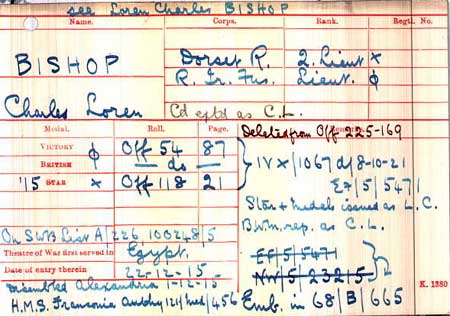 see Loren Charles BISHOP
Name. Corps. Rank. Regtl. No.
BISHOP Dorset R. 2. Lieut x
R. Ir. Fus. Lieut. ϕ
Charles Loren Cd eptd as C.L.
Medal. Roll. Page. Remarks.
Deleted from Off 225-169
VICTORY ϕ Off 54 87
BRITISH — do —
'15 STAR x Off 118 21
IV x/1067 d/8-10-21
E7/5/5471
Star + Medals issued as L.C.
B.W.M. rep. as C.L.
On SWB List A/226, 100248/5
Theatre of War first served in Egypt.
EF/5/5471
Date of entry therein 22-12-15
NW/5/23215
K. 1380
Disembked Alexandria 1-12-15
H.M.S. Franconia 121/Med/456 Emb. in 68/B/665